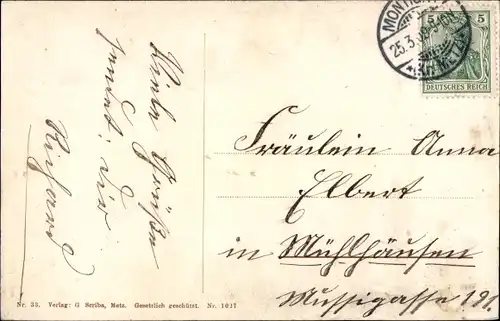 Viele Grüße
sendet dir
Richard
MONTIGNY
25.3.
(KR. METZ)
5 5
DEUTSCHES REICH
Fräulein Anna
Elbert
in Mühlhausen
Nr. 33. Verlag: G Scriba, Metz. Gesetzlich geschützt. Nr. 1011